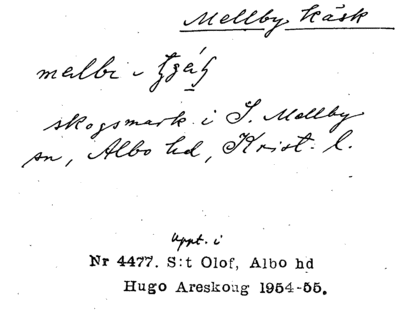 Mellby kåsk
mælbi
skogsmark i S. Mellby
sn, Albo hd, Krist. l.
Uppt. i
Nr 4477. S:t Olof, Albo hd
Hugo Areskoug 1954-55.